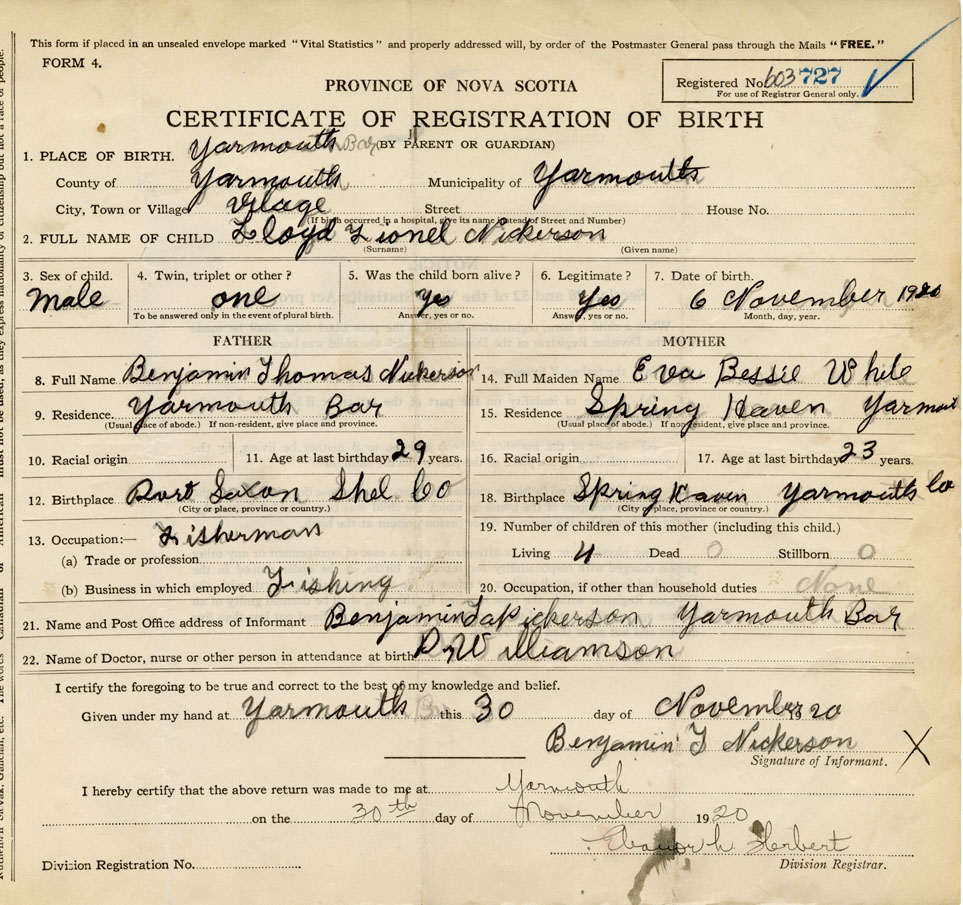 This form if placed in an unsealed envelope marked "Vital Statistics" and properly addressed will, by order of the Postmaster General pass through the Mails "FREE."
FORM 4.
Registered No. 603 727
For use of Registrar General only.
PROVINCE OF NOVA SCOTIA
CERTIFICATE OF REGISTRATION OF BIRTH
(BY PARENT OR GUARDIAN)
1. PLACE OF BIRTH. Yarmouth Bar
County of Yarmouth Municipality of Yarmouth
City, Town or Village Vilage Street House No.
(If birth occurred in a hospital, give its name instead of Street and Number)
2. FULL NAME OF CHILD Lloyd Lionel Nickerson
(Surname) (Given name)
3. Sex of child. 4. Twin, triplet or other? 5. Was the child born alive? 6. Legitimate? 7. Date of birth.
Male one Yes Yes 6 November 1920
To be answered only in the event of plural birth. Answer, yes or no. Answer, yes or no. Month, day, year.
FATHER MOTHER
8. Full Name Benjamin Thomas Nickerson 14. Full Maiden Name Eva Bessie White
9. Residence. Yarmouth Bar 15. Residence Spring Haven Yarmout
(Usual place of abode.) If non-resident, give place and province. (Usual place of abode.) If non-resident, give place and province.
10. Racial origin 11. Age at last birthday 29 years. 16. Racial origin 17. Age at last birthday 23 years.
12. Birthplace Port Saxon Shel Co 18. Birthplace Spring Haven Yarmouth Co
(City or place, province or country.) (City or place, province or country.)
13. Occupation:— Fisherman 19. Number of children of this mother (including this child.)
(a) Trade or profession Living 4 Dead 0 Stillborn 0
(b) Business in which employed Fishing 20. Occupation, if other than household duties None
21. Name and Post Office address of Informant Benjamin Nickerson Yarmouth Bar
22. Name of Doctor, nurse or other person in attendance at birth Williamson
I certify the foregoing to be true and correct to the best of my knowledge and belief.
Given under my hand at Yarmouth this 30 day of November 1920
Benjamin T Nickerson X
Signature of Informant.
I hereby certify that the above return was made to me at Yarmouth
on the 30th day of November 1920
Herbert
Division Registration No. Division Registrar.